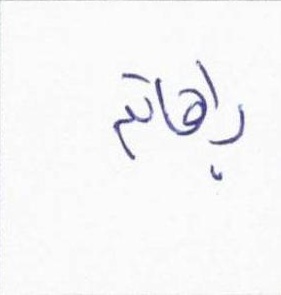 باهاتم